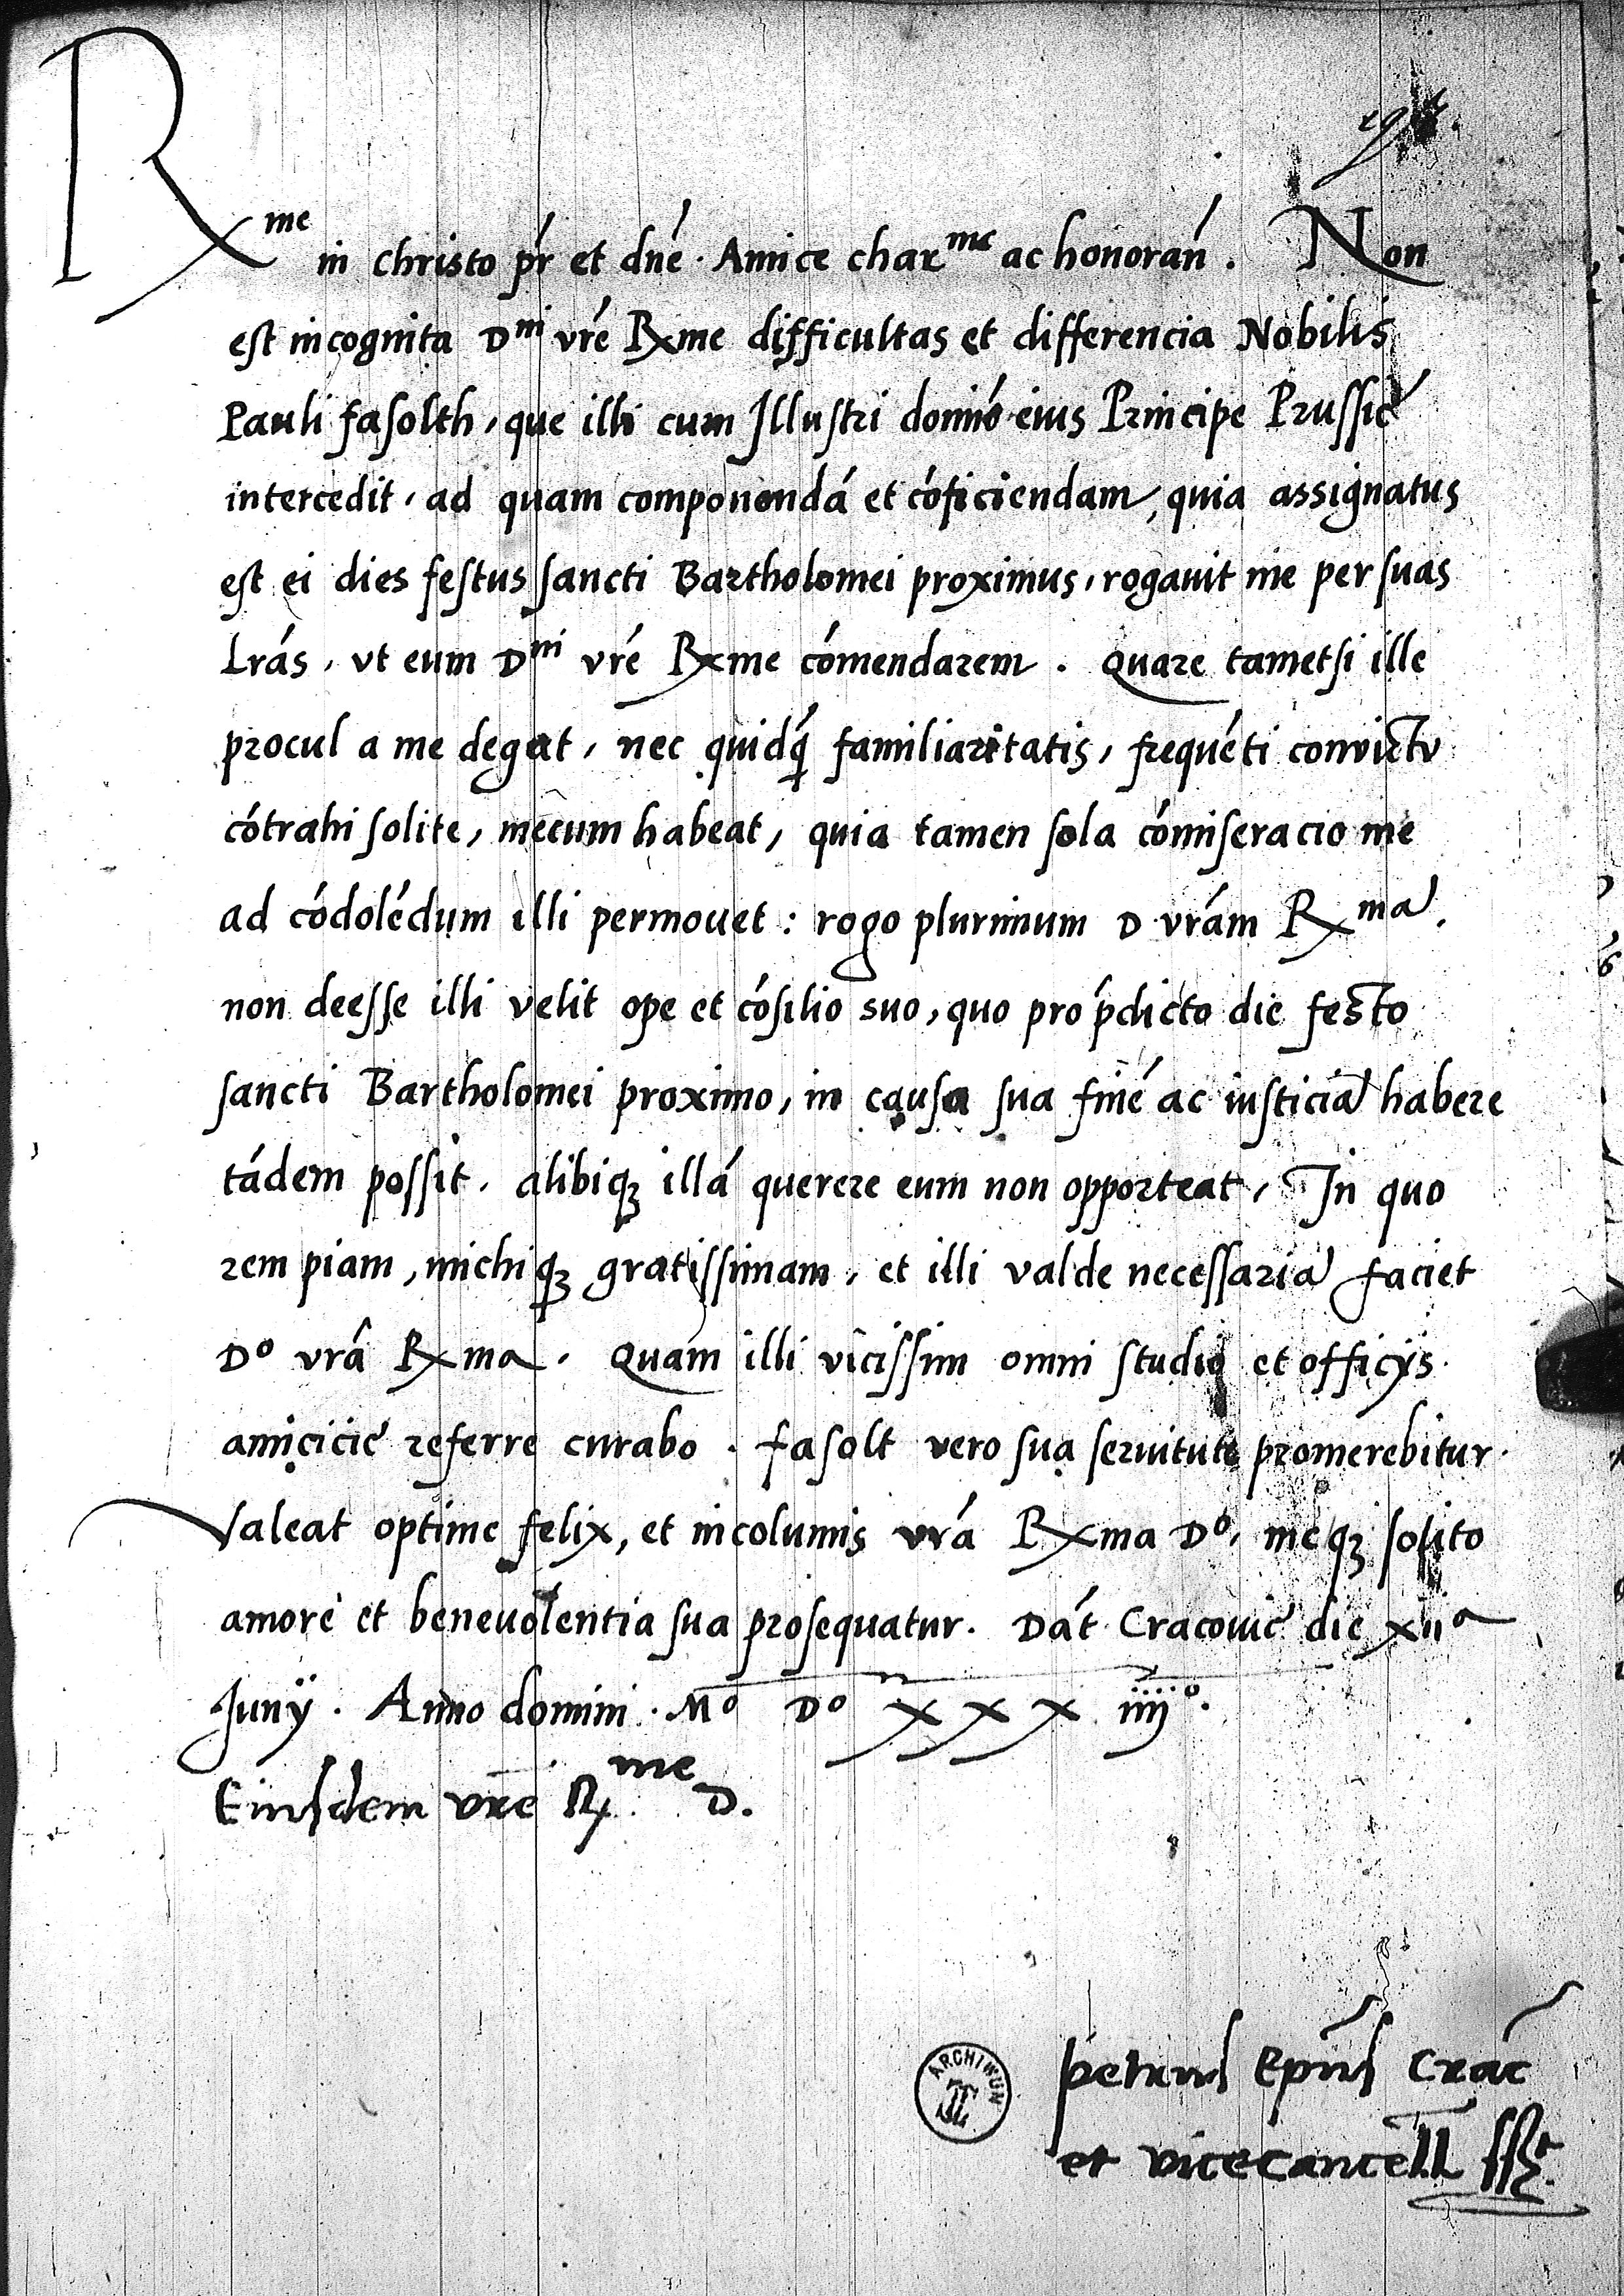 Rme in Christo pr̄ et dnē. Amice charme ac honorań. Non
est incognita Dni vrē Rme difficultas et differencia Nobilis
Pauli fasolth, que illi cum Illustri domīo eius Principe Prussię
intercedit, ad quam componendā et cōficiendam, quia assignatus
est ei dies festus sancti Bartholomei proximus, rogauit me per suas
Lrās, vt eum Dni vrē Rme cōmendarem. Quare tametsi ille
procul a me degat, nec quidq̄ familiaritatis, frequēti convictv
cōtrahi solite, mecum habeat, quia tamen sola cōmiseracio me
ad cōdolēdum illi permouet: rogo plurimum D vrām Rma.
non deesse illi velit ope et cōsilio suo, quo pro p̄dicto die festo
sancti Bartholomei proximo, in causa sua finē ac iusticiā habere
tādem possit, alibiqꝫ illā querere eum non opporteat, In quo
rem piam, michiqꝫ gratissimam, et illi valde necessariā faciet
Do vrā Rma. Quam illi vicissim omni studio et officijs
amicicię referre curabo. fasolt vero sua seruitute promerebitur.
Valeat optime felix, et incolumis vrā Rma Do, meqꝫ solito
amore et beneuolentia sua prosequatur. Dāt Cracouię die xiia
Junÿ. Anno domini. Mo Do xxx iiijo.
Eiusdem vrē Rme D.
ARCHIWUM
petrus Epūs Crac̄
et vicecancell̄ sst.